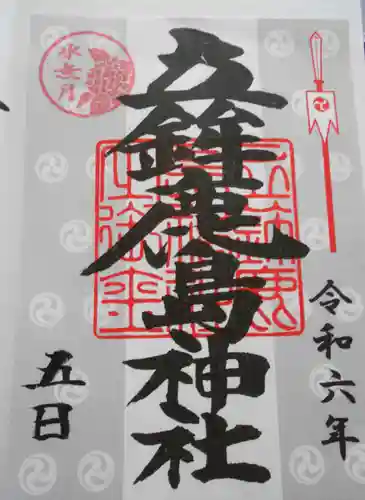 令和六年
五鉾鹿島神社
水無月
五日